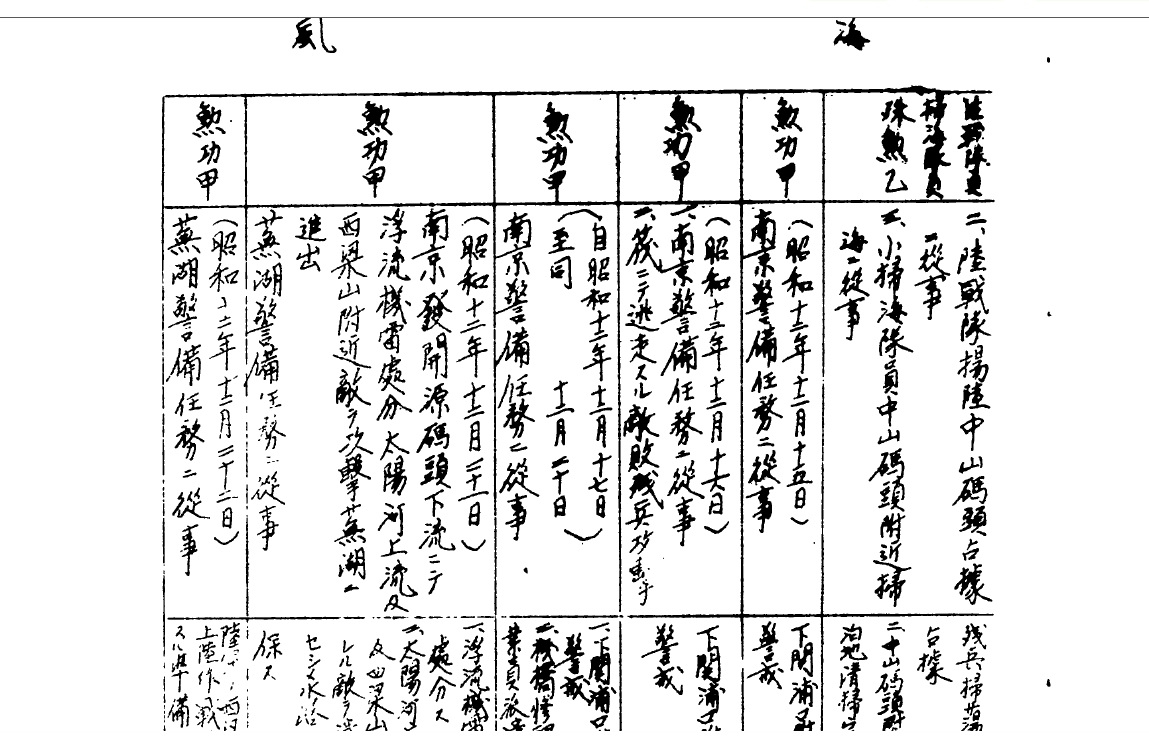 海
風
陸戰隊員
掃海隊員
殊勲乙
二、陸戰隊揚陸中山碼頭占據
ニ從事
三、小掃海隊員中山碼頭附近掃
海ニ從事
殘兵掃蕩
占據
二、中山碼頭附
泊地清掃
勲功甲
(昭和十二年十二月十五日)
南京警備任務ニ從事
下関浦口附
警戒
勲功甲
(昭和十二年十二月十六日)
一、南京警備任務ニ從事
二、筏ニテ逃走スル敵敗残兵攻撃
下関浦口
警戒
勲功甲
(自昭和十二年十二月十七日)
(至同 十二月二十日)
南京警備任務ニ從事
一、下関浦口
警戒
二、桟橋修理
業員
勲功甲
(昭和十二年十二月二十一日)
南京發開源碼頭下流ニテ
浮流機雷處分太陽河上流及
西梁山附近敵ヲ攻撃蕪湖ニ
進出
蕪湖警備任務ニ從事
一、浮流機雷
處分ス
二、太陽河
及西梁山
レル敵ヲ
セシメ水路
保ス
勲功甲
(昭和十二年十二月二十二日)
蕪湖警備任務ニ從事
上陸作戰
スル準備